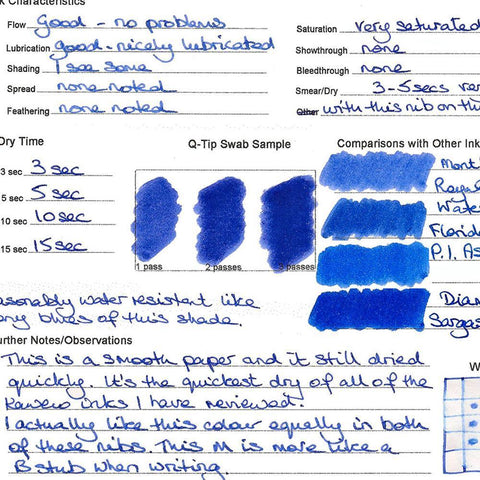 k Characteristics
Flow Good - no problems
Lubrication good - nicely lubricated
Shading I see some
Spread none noted
Feathering none noted
Saturation very saturated
Showthrough none
Bleedthrough none
Smear/Dry 3-5secs ver
Other with this nib on thi
Dry Time
3 sec 3 sec
5 sec 5 sec
10 sec 10 sec
15 sec 15 sec
Q-Tip Swab Sample
1 pass 2 passes 3 passes
Comparisons with Other Ink
Mont
Royal
Water
Florida
P.I. As
Diam
Sargas
asonably water resistant like
any blues of this shade.
urther Notes/Observations
This is a smooth paper and it still dried
quickly. It's the quickest dry of all of the
Kaweco inks I have reviewed.
I actually like this colour equally in both
of these nibs. This M is more like a
B stub when writing.
W